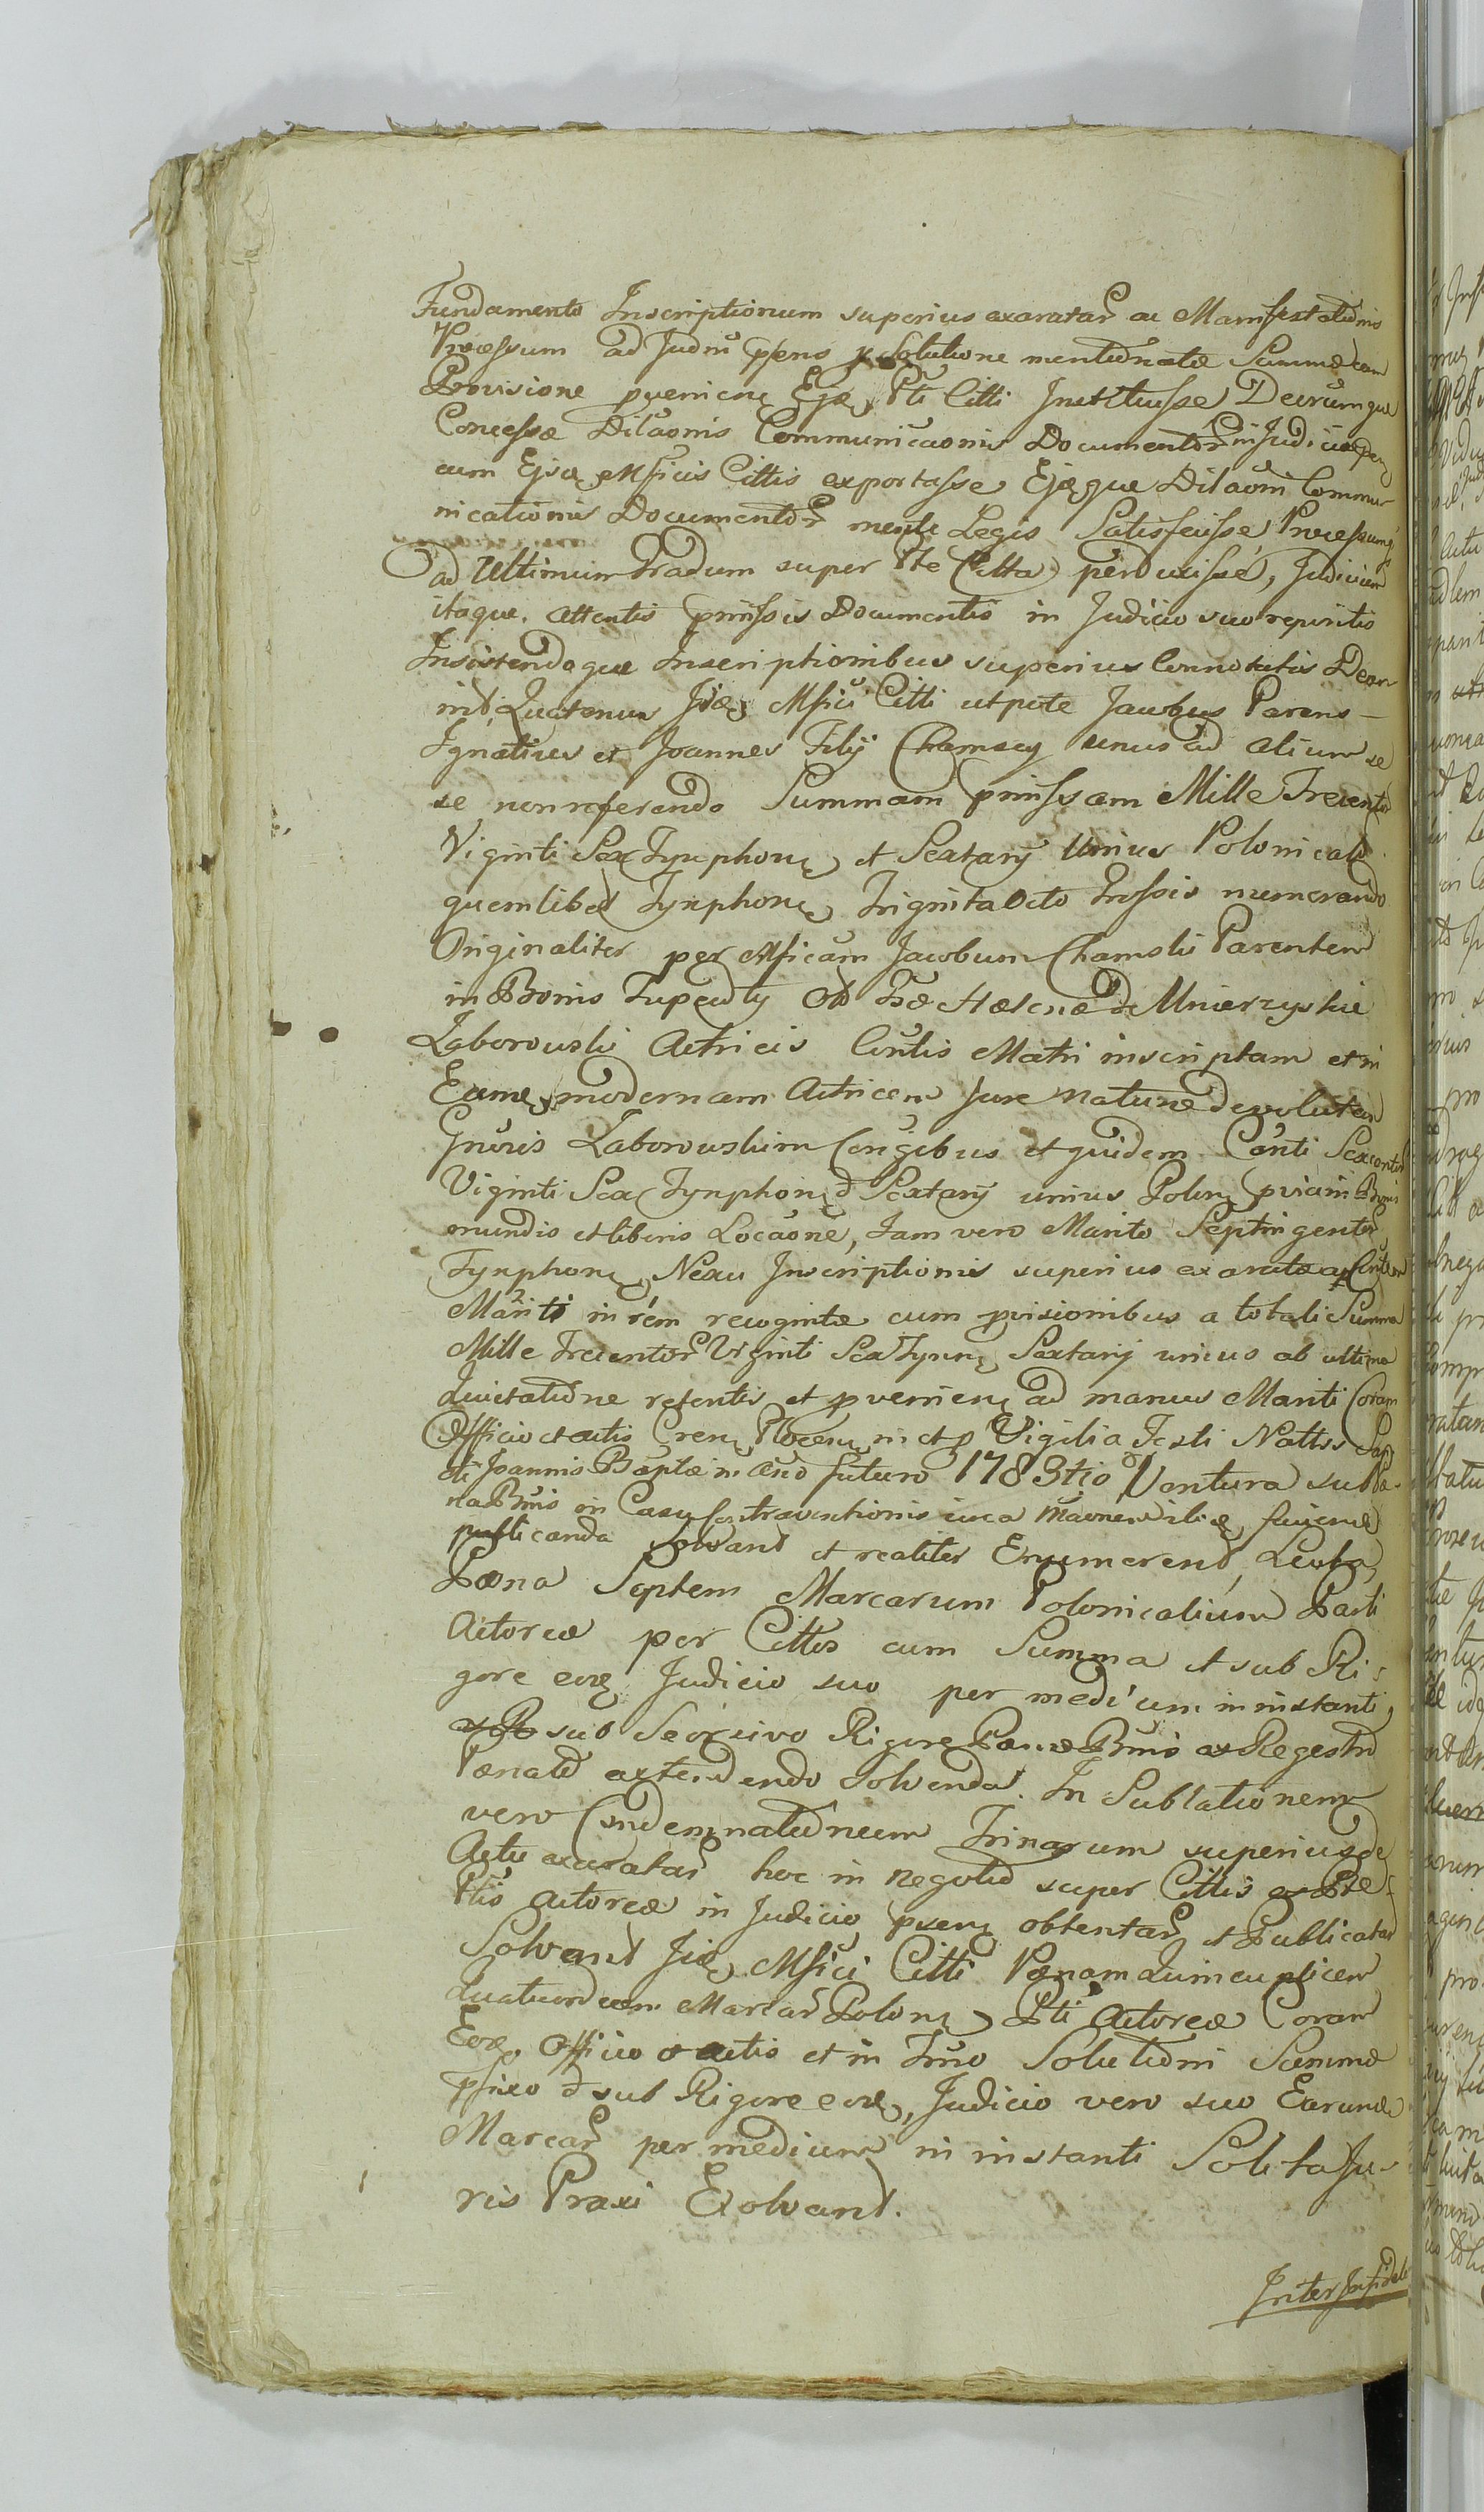 Fundamento Inscriptionum superius exaratar ac Manifestationis
Processum ad Judm psens p Solutione mentionatæ Summæ cum
Provisione pvenien Ejsd Pti Citti Instituisse Decrumque
Concessæ Dilaonis Communicaonis Documentor in Judicio
cum Ejsd Mficis Cittis exportasse Ejdque Dilaoni Commu-
nicationis Documentor mente Legis Satisfecisse, Processumq
ad Ultimum Gradum super Pte Citta perduxisse, Judicium
itaque. attentis pmissis Documentis in Judicio suo repositis
Insistendoque Inscriptionibus superius Connotatis Decer
nit, Quatenus Jid Mfici Citti utpote Jacobus Parens
Ignatius et Joannes Filij Chamscy unus ad alium se
se non referendo Summam pmissam Mille Trecentor
Viginti Sex Tynphon et Sextarij Unius Polonicali
quemlibet Tynphon Triginta Octo Grossis numerando
Originaliter per Mficum Jacobum Chamski Parentem
in Bonis Ob Gsæ Helenæ de
Zaborouski Actricis Matri inscriptam et in
Eamd modernam Actricem Jure naturæ devolutam
Gnosis Zaborouskim Conjgibus et quidem Sexcentor
Viginti Sex Tynphon et Sextarij unius Polon pviam Bonis
mundis et liberis Locaone, Jam vero Marito Septingentor
Tynphon Nexu Inscriptionis superius exaratæ
Mariti in rem recognitæ cum pvisionibus a totali Summa
Mille Trecentor Viginti Sex Tynn Sextarij unius ab ultima
Quietatione retentis et pvenien ad manus Mariti Coram
Officio et actis Cren Plocen in et p Vigilia Festi Nattis San
cti Joannis Baptæ in Ano futuro 1783tio Ventura sub Pæ-
na Bnis in Casu Contraventionis
publicanda Solvant et realiter Enumerent, Lucta
Pæna Septem Marcarum Polonicalium Parti
Actoreæ per Cittos cum Summa et sub Ri-
gore eod Judicio suo per medium in instanti,
sub Seorsivo Rigore Pænæ Bnis ex Regestro
Pænali extendendo Solvenda. In Sublationem
vero Condemnationum Trinarum superius de
Actu exaratar hoc in negotio super Cittis ex Pte
Ptis Actoreæ in Judicio psen obtentar et Publicatar
Solvant Jid Mfici Citti Pænam Quincuplicem
Quatuordecem Marcar Polon Pti Actoreæ Coram
Eod Officio et actis et in Tmno Solutioni Summæ
pfixo et sub Rigore eod, Judicio vero suo Earund
Marcar per medium in instanti Solita Ju-
ris Praxi Exolvant.